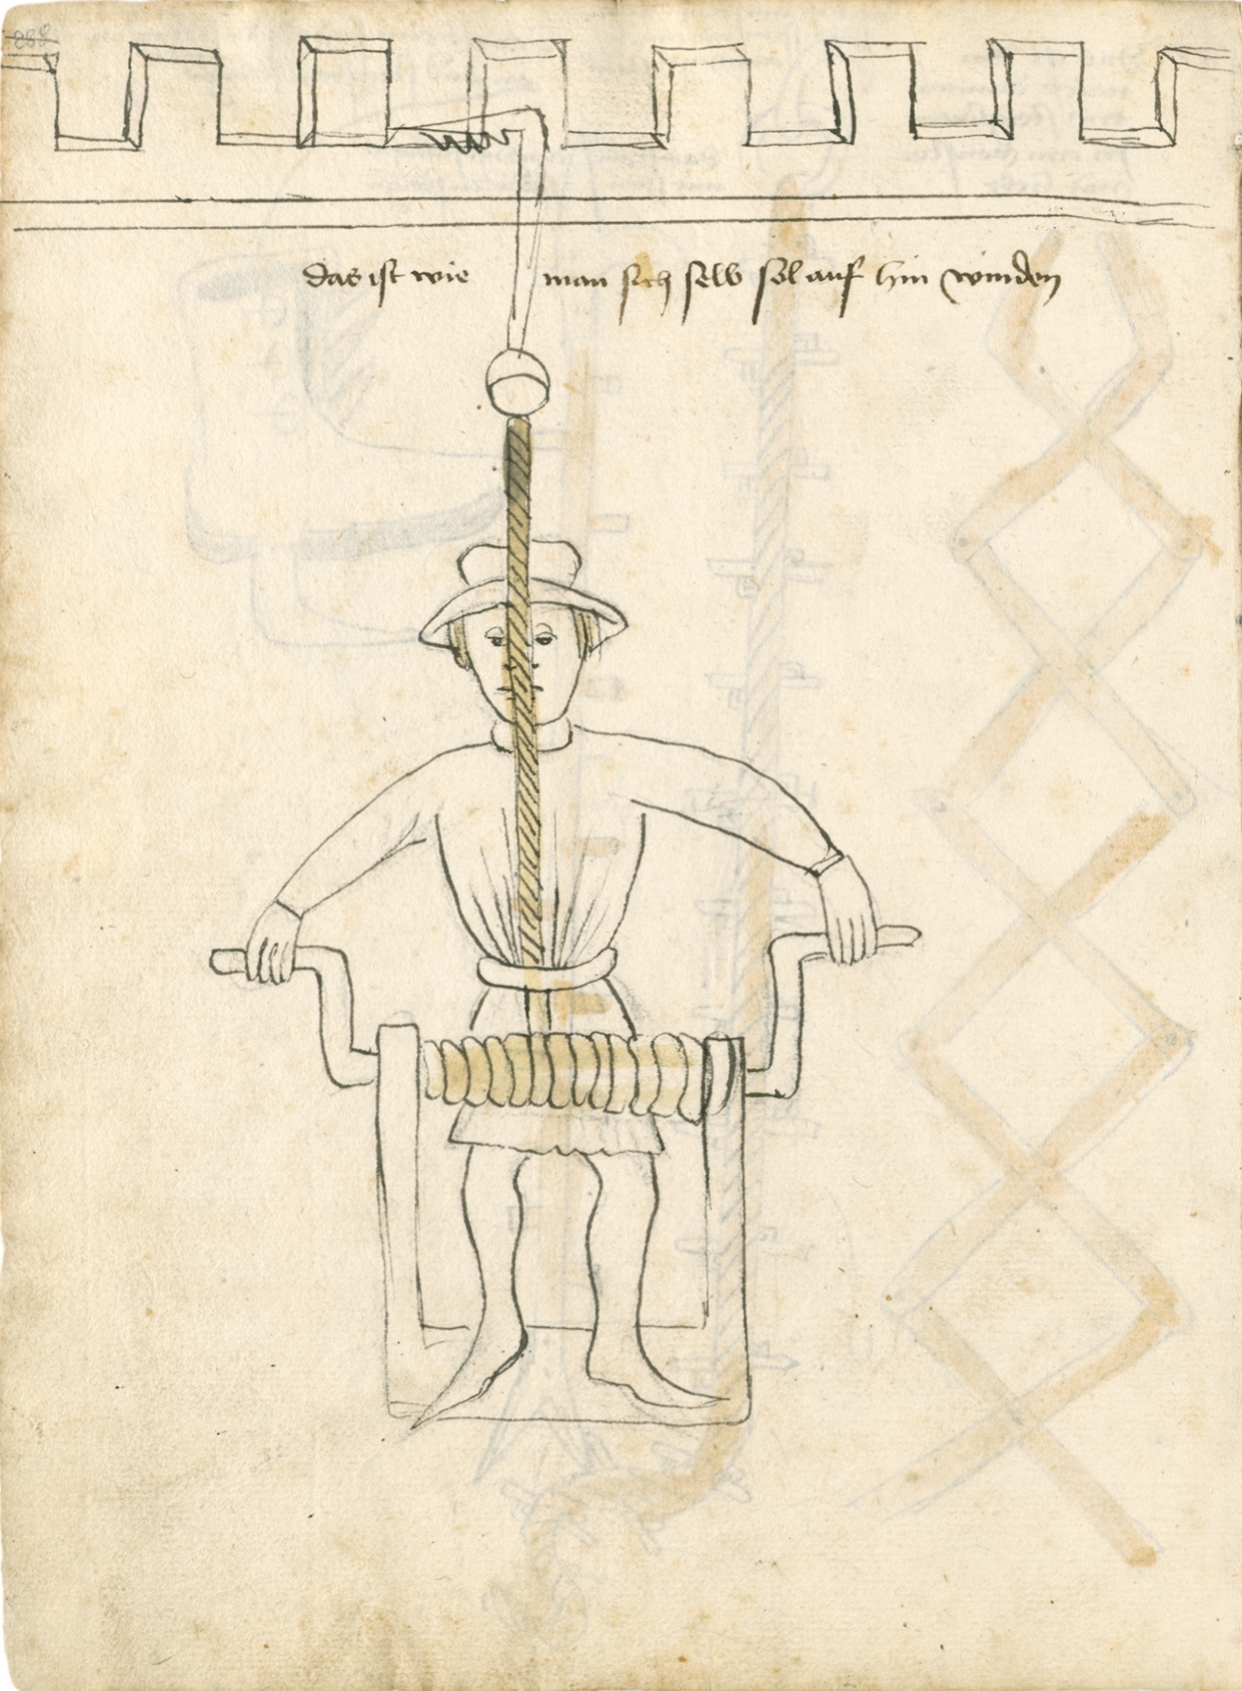 das ist wie man sich selb sol auf hin winden